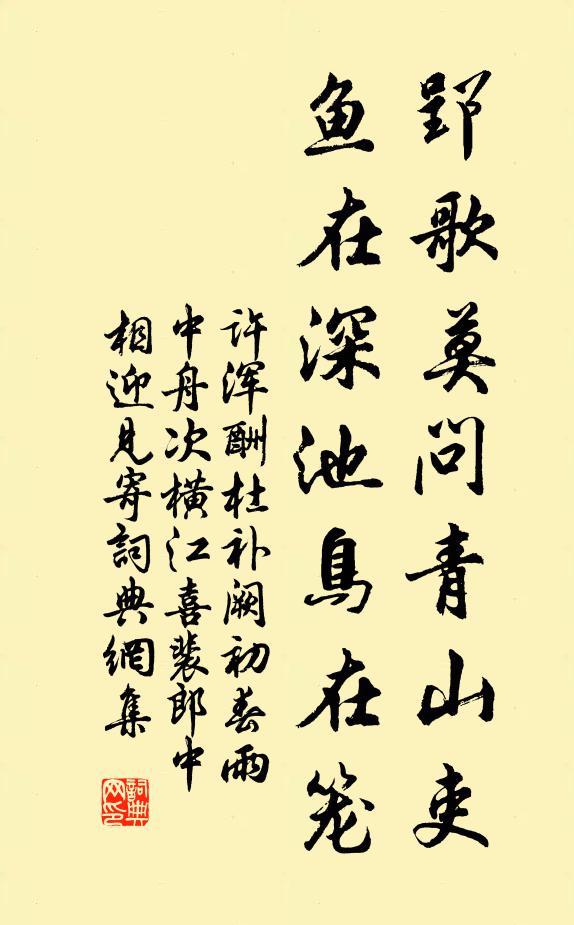 郢歌莫问青山吏
鱼在深池鳥在笼
许浑酬杜补阙初春雨
中舟次横江喜裴郎中
相迎见寄詞典網集
詞典
网印